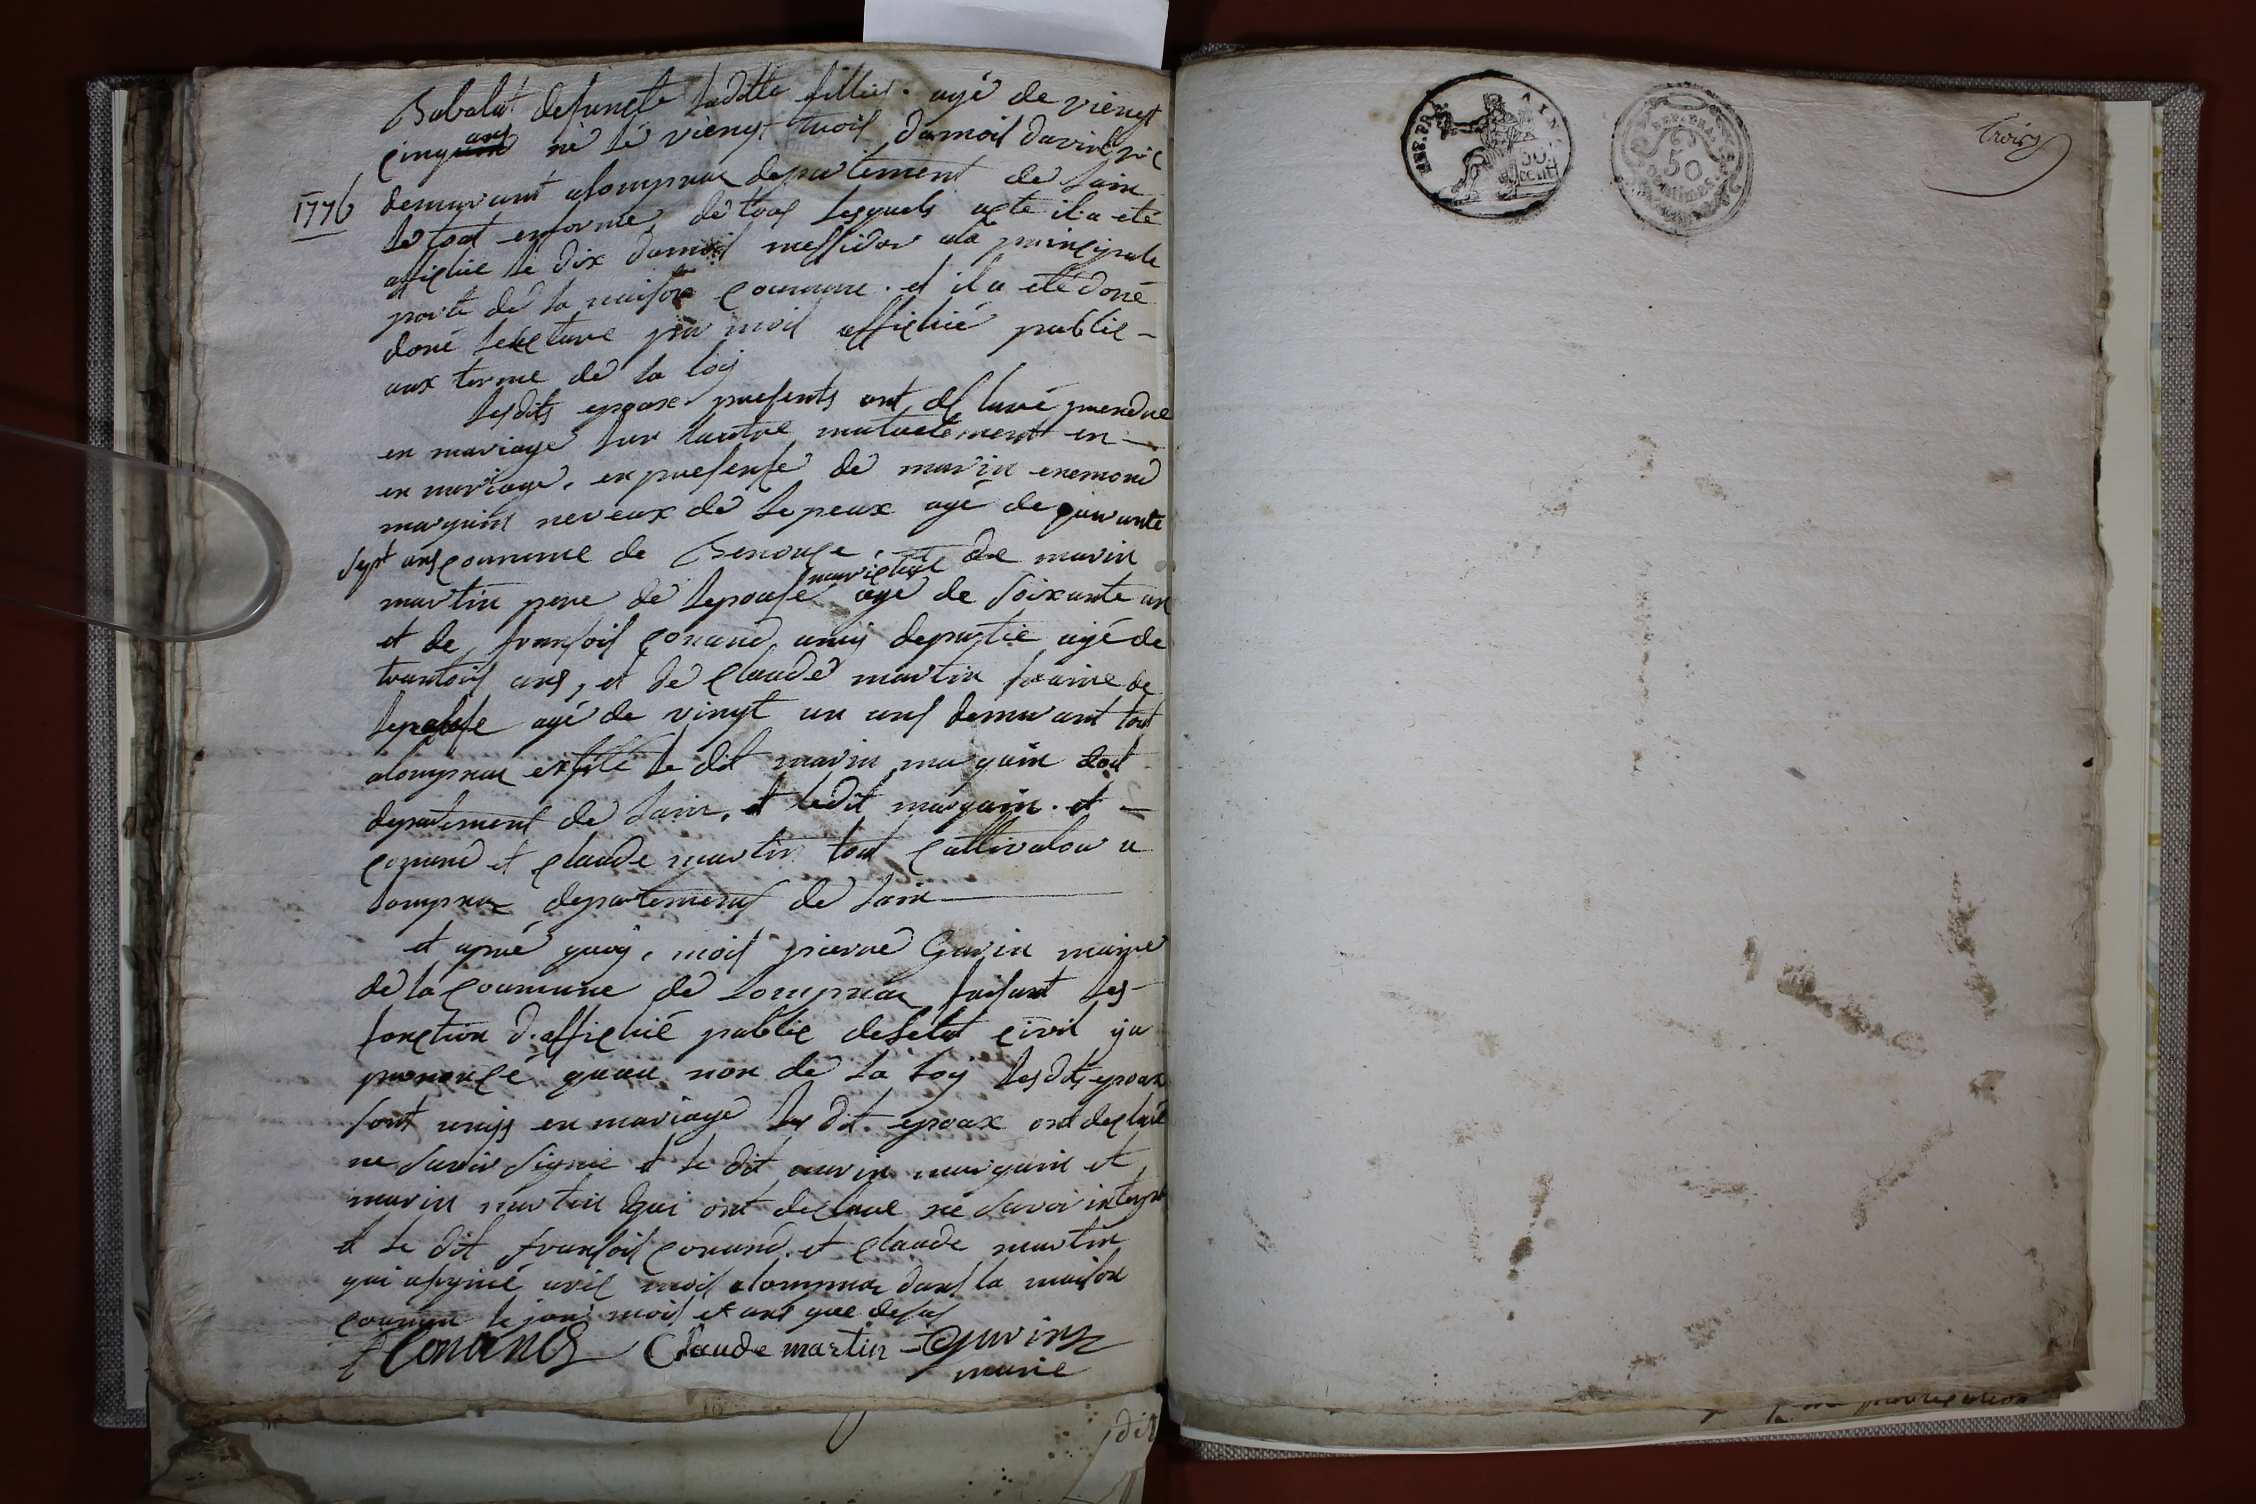 Babalat defuncte laditte fillies. agé de viengt
cinq ans né lé viengt trois dumois davril
1776 demurant alompnas departement de lain
le tout enforme, de tous lesquels acte il a eté
affiché le dix dumois messidor ala principale
porte de la maison commune. et il a eté doné
doné lecture par mois affichié public -
aux terme de la loy
lesdits epoux presents ont declaré prendre
en mariage lun lautre mutuelement en -
en mariage, enpresense de marin enemond
marguin neveux de lepeux agé de quarante
sept ans commune de Benonse, et de marin
martin pere de lepouse agé de soixante un
et de fransois Conand amis departie agé de
trantois ans, et de claude martin fraire de
lepouse agé de vingt un ans demurant tout
alompnas le dit marin marguin tout
departement de lain, et ledit marguin. et -
conand et claude martin tout cultivatou a
lompnas departement de lain
et apré quoy, mois pierre Guvin maire
de la commune de Lompnas faisant les
fonction d'affichié public deletat civil ja
prononcé quau non de la loy lesdits epoux
sont uniss en mariage les dit epoux ont declaré
ne savoir signie et le dit marin marguin et
marin martin qui ont declaré né savoir
et le dit fransois conand. et claude martin
qui asynié avec mois alompnas dans la maison
commune le jour mois et ans que desus
F Conand Claude martin Guvin
marie
REP. FRA. AIN 50 cent
REP. FRA. 50 centimes
trois